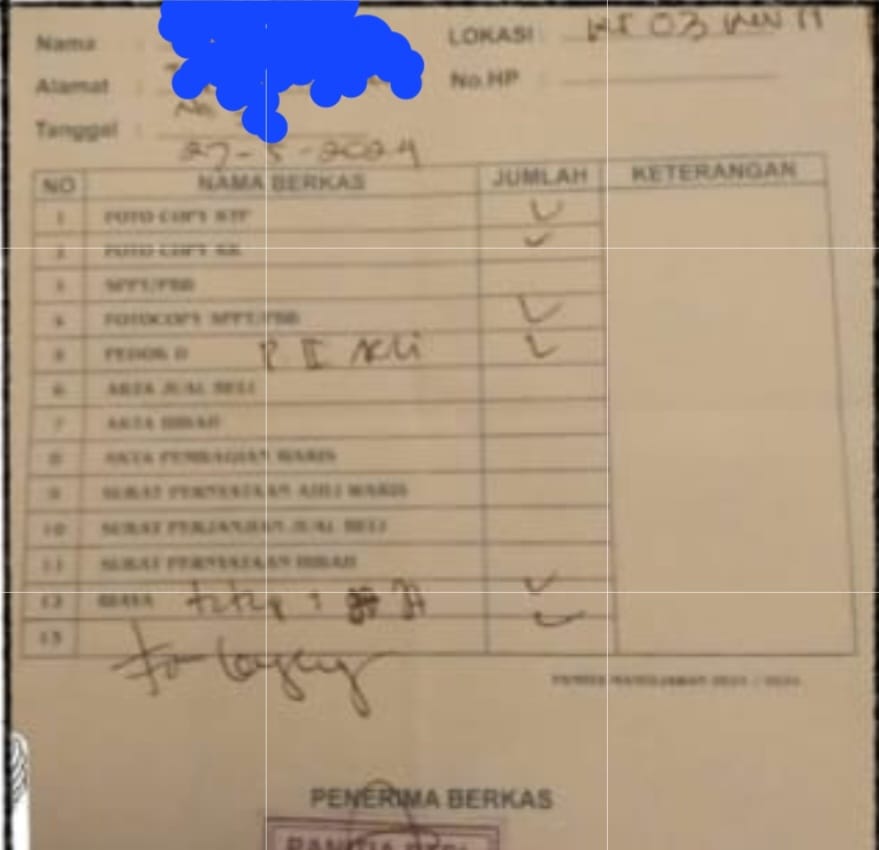 Nama :
LOKASI : RT 03
Alamat :
No.HP :
Tanggal : 27-5-2024
NO NAMA BERKAS JUMLAH KETERANGAN
1 FOTO COPY KTP ✓
2 FOTO COPY KK ✓
3 SPPT/PBB
4 FOTOCOPY SPPT/PBB ✓
5 PETHOK D ✓
6 AKTA JUAL BELI
7 AKTA HIBAH
8 AKTA PEMBAGIAN WARIS
9 SURAT PERNYATAAN AHLI WARIS
10 SURAT PERJANJIAN JUAL BELI
11 SURAT PERNYATAAN HIBAH
12 BIAYA ✓
13 ✓
PENERIMA BERKAS
PANITIA